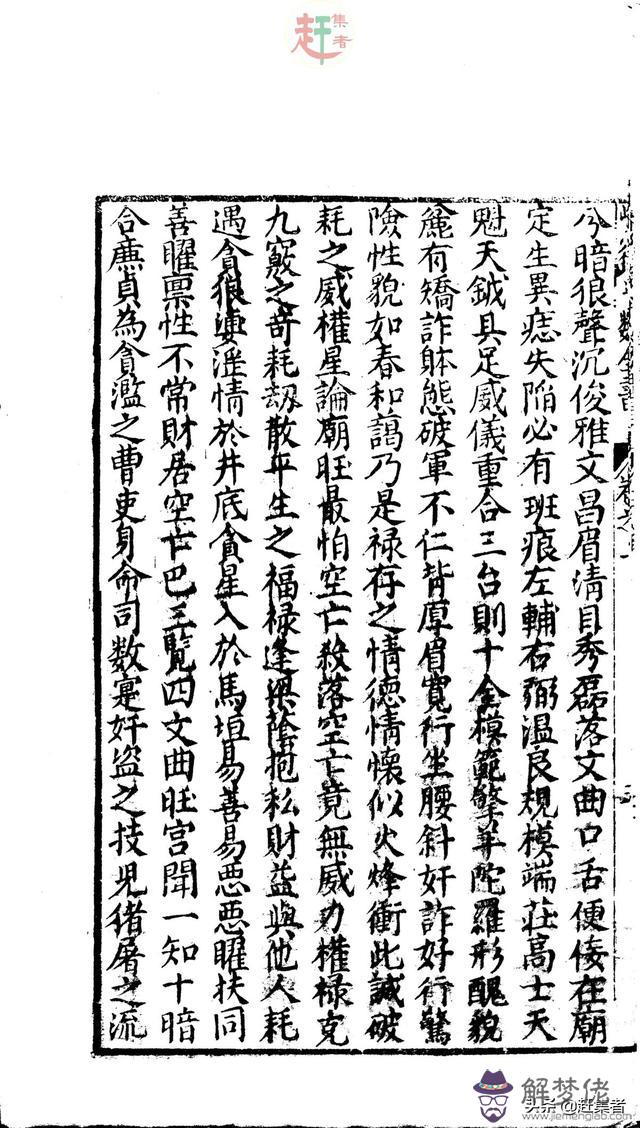 赶集者
兮暗狠聲沉俊雅文昌眉清目秀磊落文曲口舌便佞在廟
定生異痣失陷必有班痕左輔右弼溫良規模端莊高士天
魁天鉞具足威儀重合三台則十全模範擎羊陀羅形醜貌
麄有矯詐躰態破軍不仁背厚眉寬行坐腰斜奸詐好行驚
險性貌如春和藹乃是禄存之情德情懷似火烽衝此誠破
耗之威權星論廟旺最怕空亡殺落空亡竟無威力權禄克
九竅之奇耗劫散平生之福禄逢梁蔭抱私財益與他人耗
遇貪狼婬淫情於井底貪星入於馬垣易善易惡惡曜扶同
善曜禀性不常財居空亡巴三覽四文曲旺宮聞一知十暗
合廉貞為貪濫之曹吏身命司数寔奸盜之技児猪屠之流
解梦佬
头条@赶集者